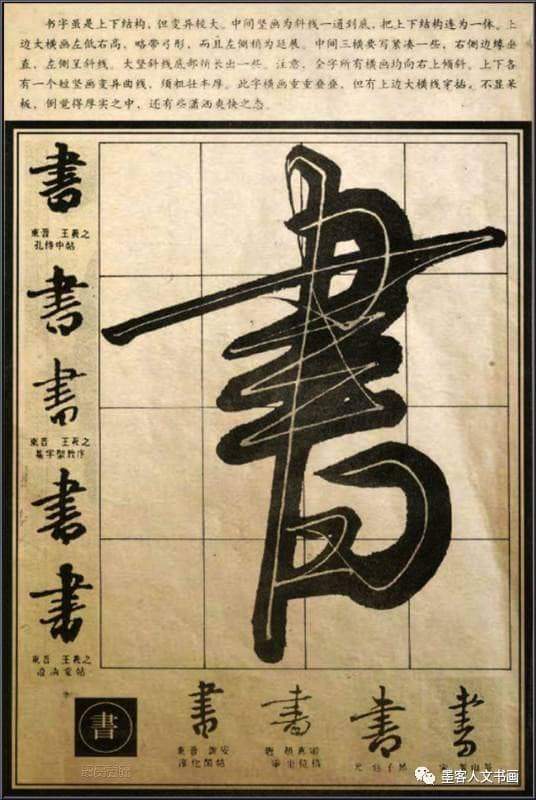 书字虽是上下结构，但变异较大。中间竖画为斜线一通到底，把上下结构连为一体。上
边大横画左低右高，略带弓形，而且左侧稍为延展。中间三横要写紧凑一些，右侧边缘垂
直，左侧呈斜线。大竖斜线底部稍长出一些。注意，全字所有横画均向右上倾斜。上下各
有一个短竖画变异曲线，须粗壮丰厚。此字横画重重叠叠，但有上边大横线穿插，不显呆
板，倒觉得厚实之中，还有些潇洒爽快之态。
書
東晋 王羲之
孔侍中帖
書
書
東晋 王羲之
集字聖教序
書
書
東晋 王羲之
書
書
書
東晋 謝安
淳化閣帖
書
書
書
墨客人文书画